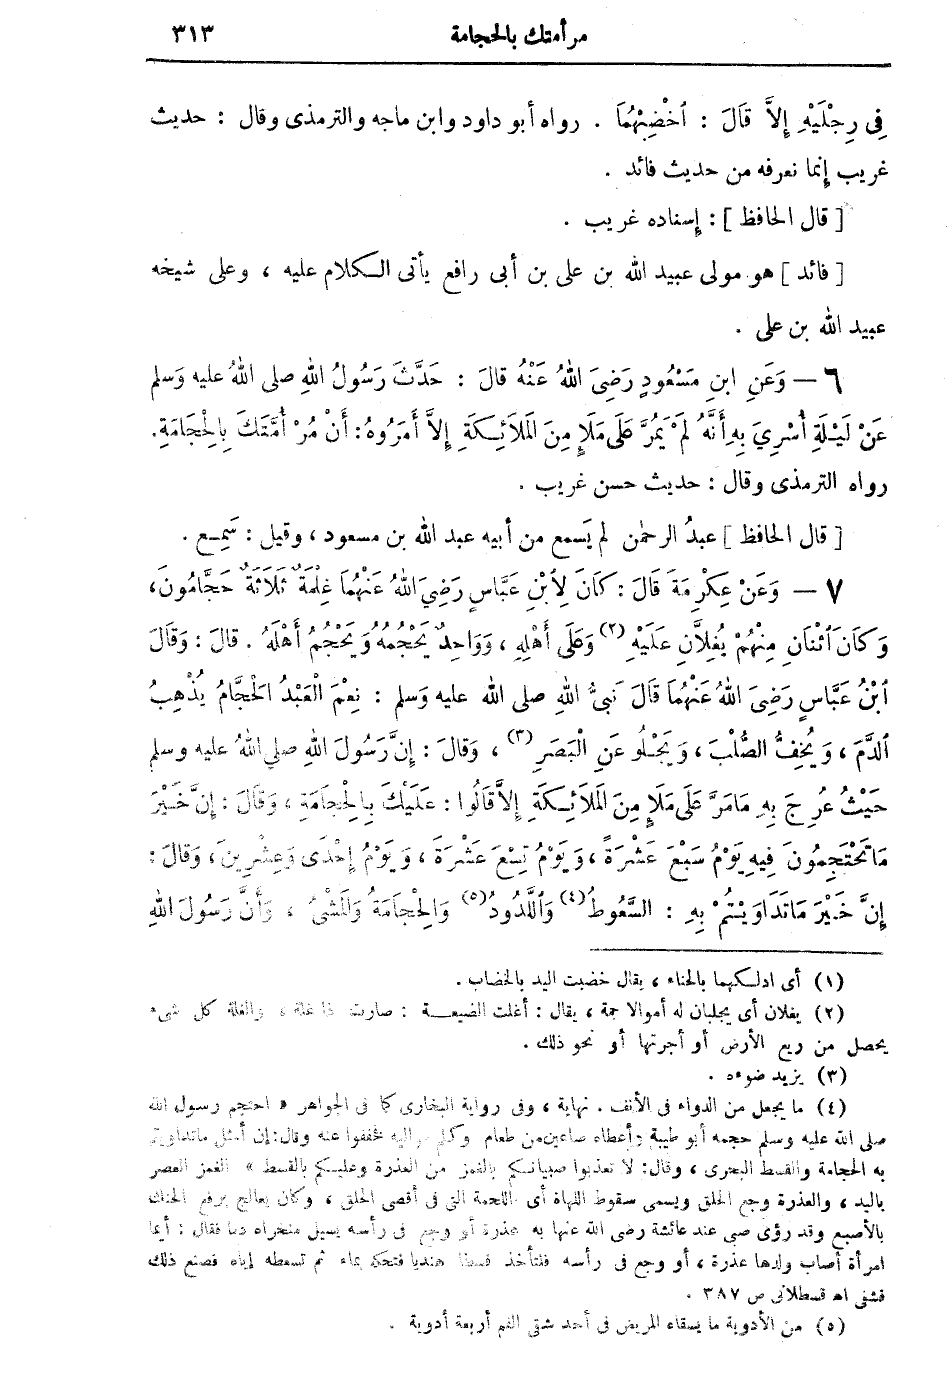 مر أمتك بالحجامة ٣١٣
فِى رِجْلَيْهِ إِلاَّ قَالَ : ٱخْضِبْهُمَا . رواه أبو داود وابن ماجه والترمذى وقال : حديث
غريب إنما نعرفه من حديث فائد .
[ قال الحافظ ] : إسناده غريب .
[ فائد ] هو مولى عبيد الله بن على بن أبى رافع يأتى الكلام عليه ، وعلى شيخه
عبيد الله بن على .
٦ — وَعَنِ ابنِ مَسْعُودٍ رَضِىَ اللهُ عَنْهُ قالَ : حَدَّثَ رَسُولُ اللهِ صلى اللهُ عليه وَسلم
عَنْ لَيْلَةِ أُسْرِىَ بِهِ أَنَّهُ لَمْ يَمُرَّ عَلَى مَلَإٍ مِنَ المَلَائِكَةِ إِلاَّ أَمَرُوهُ : أَنْ مُرْ أُمَّتَكَ بِالْحِجَامَةِ.
رواه الترمذى وقال : حديث حسن غريب .
[ قال الحافظ ] عبدُ الرحمٰن لم يَسمع من أبيه عبد الله بن مسعود ، وقيل : سَمِع .
٧ — وَعَنْ عِكْرِمَةَ قَالَ : كَانَ لِٱبْنِ عَبَّاسٍ رَضِىَ اللهُ عَنْهُمَا غِلْمَةٌ ثَلَاثَةٌ حَجَّامُونَ ،
وَكَانَ ٱثْنَانِ مِنْهُمْ يُغِلاَّنِ عَلَيْهِ (٢) وَعَلَى أَهْلِهِ ، وَوَاحِدٌ يَحْجُمُهُ وَيَحْجُمُ أَهْلَهُ . قالَ : وَقَالَ
ٱبْنُ عَبَّاسٍ رَضِىَ اللهُ عَنْهُمَا قَالَ نَبِىُّ اللهِ صلى الله عليه وَسلم : نِعْمَ الْعَبْدُ الْحَجَّامُ يُذْهِبُ
ٱلدَّمَ ، وَيُخِفُّ الصُّلْبَ ، وَيَجْلُو عَنِ الْبَصَرِ (٣) ، وَقَالَ : إِنَّ رَسُولَ اللهِ صلى اللهُ عليه وسلم
حَيْثُ عُرِجَ بِهِ مَا مَرَّ عَلَى مَلَإٍ مِنَ المَلَائِكَةِ إِلاَّ قَالُوا : عَلَيْكَ بِالْحِجَامَةِ ، وَقَالَ : إِنَّ خَيْرَ
مَا تَحْتَجِمُونَ فِيهِ يَوْمُ سَبْعَ عَشْرَةَ ، وَيَوْمُ تِسْعَ عَشْرَةَ ، وَيَوْمُ إِحْدَى وَعِشْرِينَ ، وَقَالَ :
إِنَّ خَيْرَ مَا تَدَاوَيْتُمْ بِهِ : السَّعُوطُ (٤) وَٱللَّدُودُ (٥) وَالْحِجَامَةُ وَالْمَشْىُ ، وَأَنَّ رَسُولَ اللهِ
(١) أى ادلكهما بالحناء ، يقال خضبت اليد بالخضاب .
(٢) يغلان أى يجلبان له أموالا جمة ، يقال : أغلت الضيعة : صارت ذا غلة ، والغلة كل شىء
يحصل من ريع الأرض أو أجرتها أو نحو ذلك .
(٣) يزيد ضوءه .
(٤) ما يجعل من الدواء فى الأنف . نهاية ، وفى رواية البخارى كما فى الجواهر « احتجم رسول الله
صلى الله عليه وسلم حجمه أبو طيبة وأعطاه صاعين من طعام وكلم مواليه فخففوا عنه وقال : إن أمثل ما تداويتم
به الحجامة والقسط البحرى ، وقال : لا تعذبوا صبيانكم بالغمز من العذرة وعليكم بالقسط » الغمز العصر
باليد ، والعذرة وجع الحلق ويسمى سقوط اللهاة أى اللحمة التى فى أقصى الحلق ، وكان يعالج برفع الحنك
بالأصبع وقد رؤى صبى عند عائشة رضى الله عنها به عذرة أو وجع فى رأسه يسيل منخراه دما فقال : أيما
امرأة أصاب ولدها عذرة ، أو وجع فى رأسه فلتأخذ قسطا هنديا فتحكه بماء ثم تسعطه إياه فصنع ذلك
فشفى اهـ قسطلانى ص ٣٨٧ .
(٥) من الأدوية ما يسقاه المريض فى أحد شقى الفم أربعة أدوية .